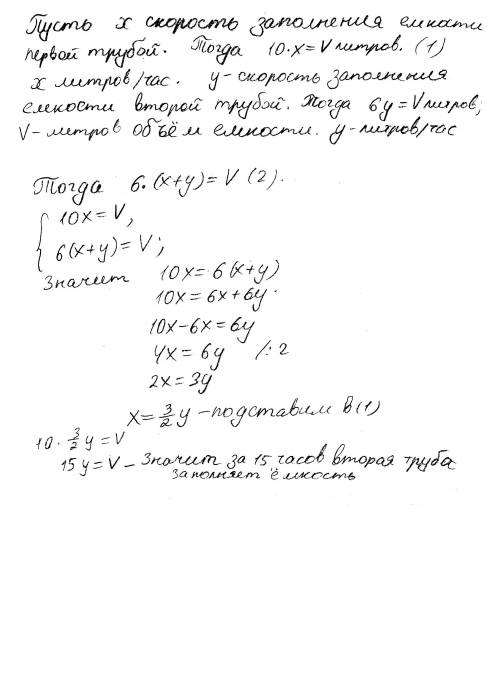 Пусть x скорость заполнения емкости
первой трубой. Тогда 10·x=V литров. (1)
x литров/час. y-скорость заполнения
емкости второй трубой. Тогда 6y=V литров;
V-литров объём емкости. y-литров/час
Тогда 6·(x+y)=V (2).
{ 10x=V,
6(x+y)=V;
Значит 10x=6(x+y)
10x=6x+6y.
10x-6x=6y
4x=6y /:2
2x=3y
x=3/2y-подставим в(1)
10·3/2y=V
15y=V-Значит за 15 часов вторая труба
заполняет ёмкость